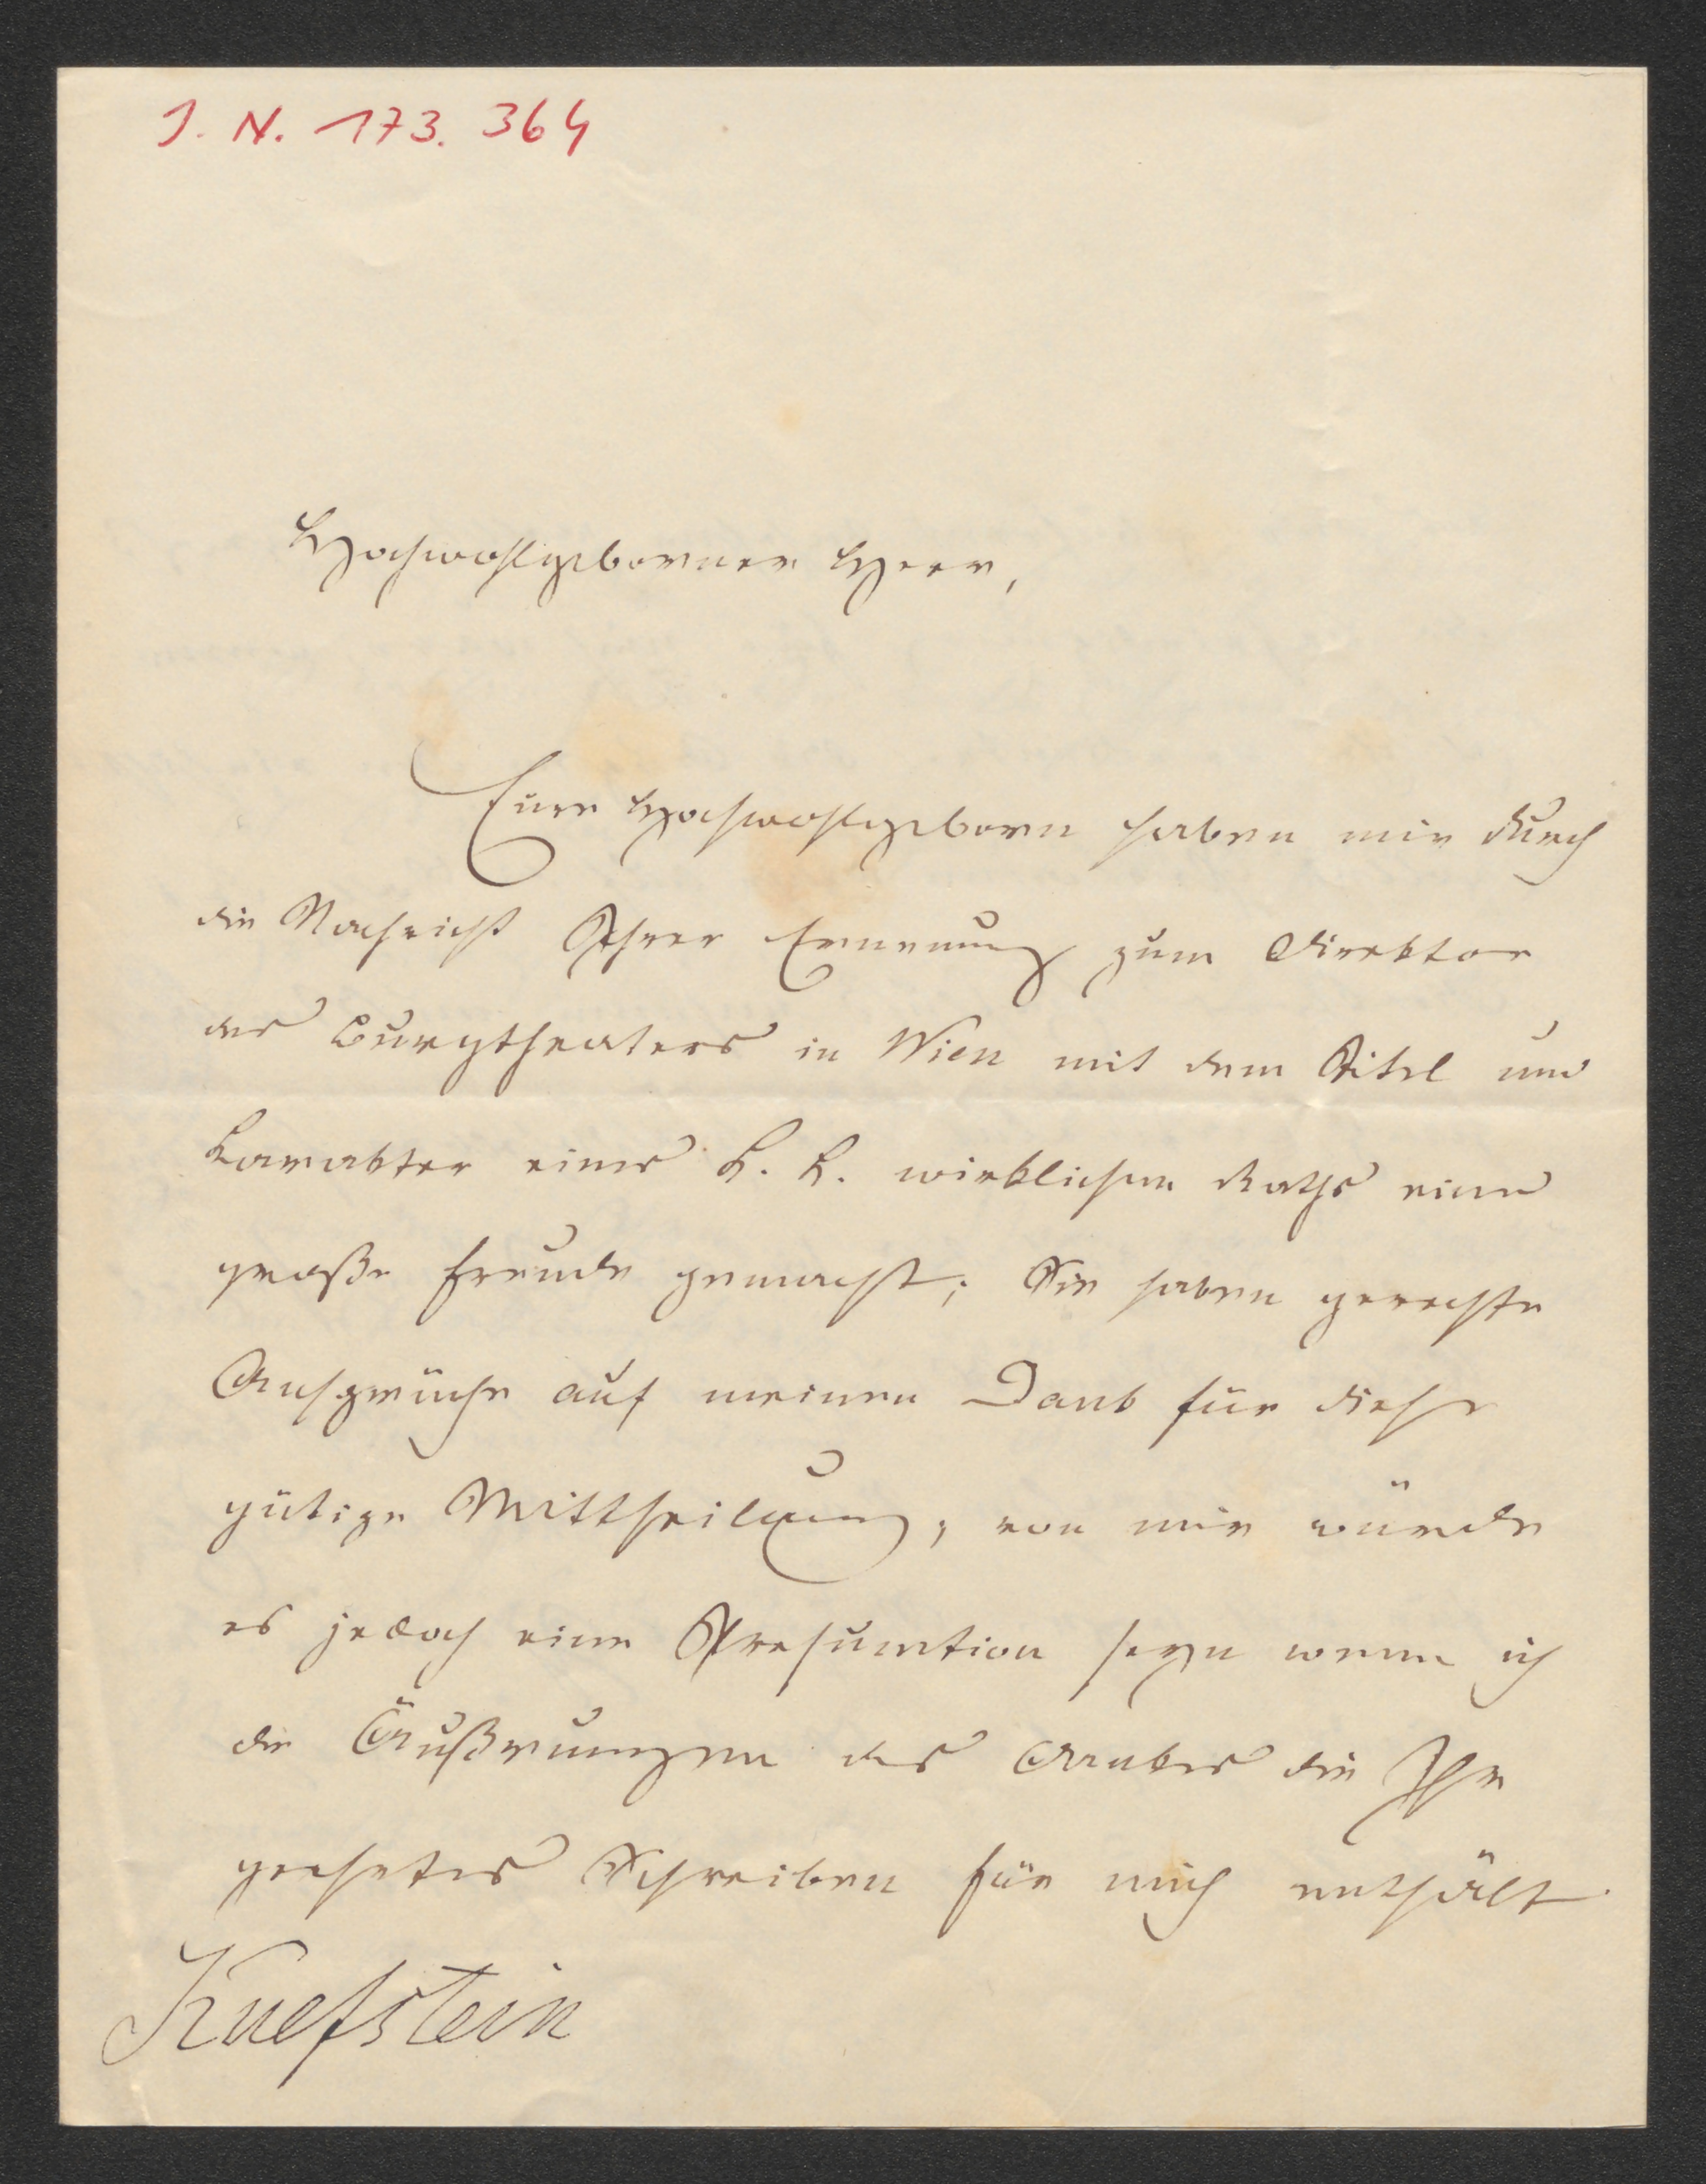 J. N. 173.364
Hochwohlgeborner Herr,
Eure Hochwohlgeborn haben mir durch
die Nachricht Ihrer Ernenung zum Direktor
des Burgtheaters in Wien mit dem Titel und
Karakter eines k. k. wirklichen Raths eine
große Freude gemacht; Sie haben gerechte
Ansprüche auf meinen Dank für diese
gütige Mittheilung, von mir würde
es jedoch eine Presumtion seyn wenn ich
die Äußerungen des Dankes die Ihr
geehrtes Schreiben für mich enthält
Kuefstein